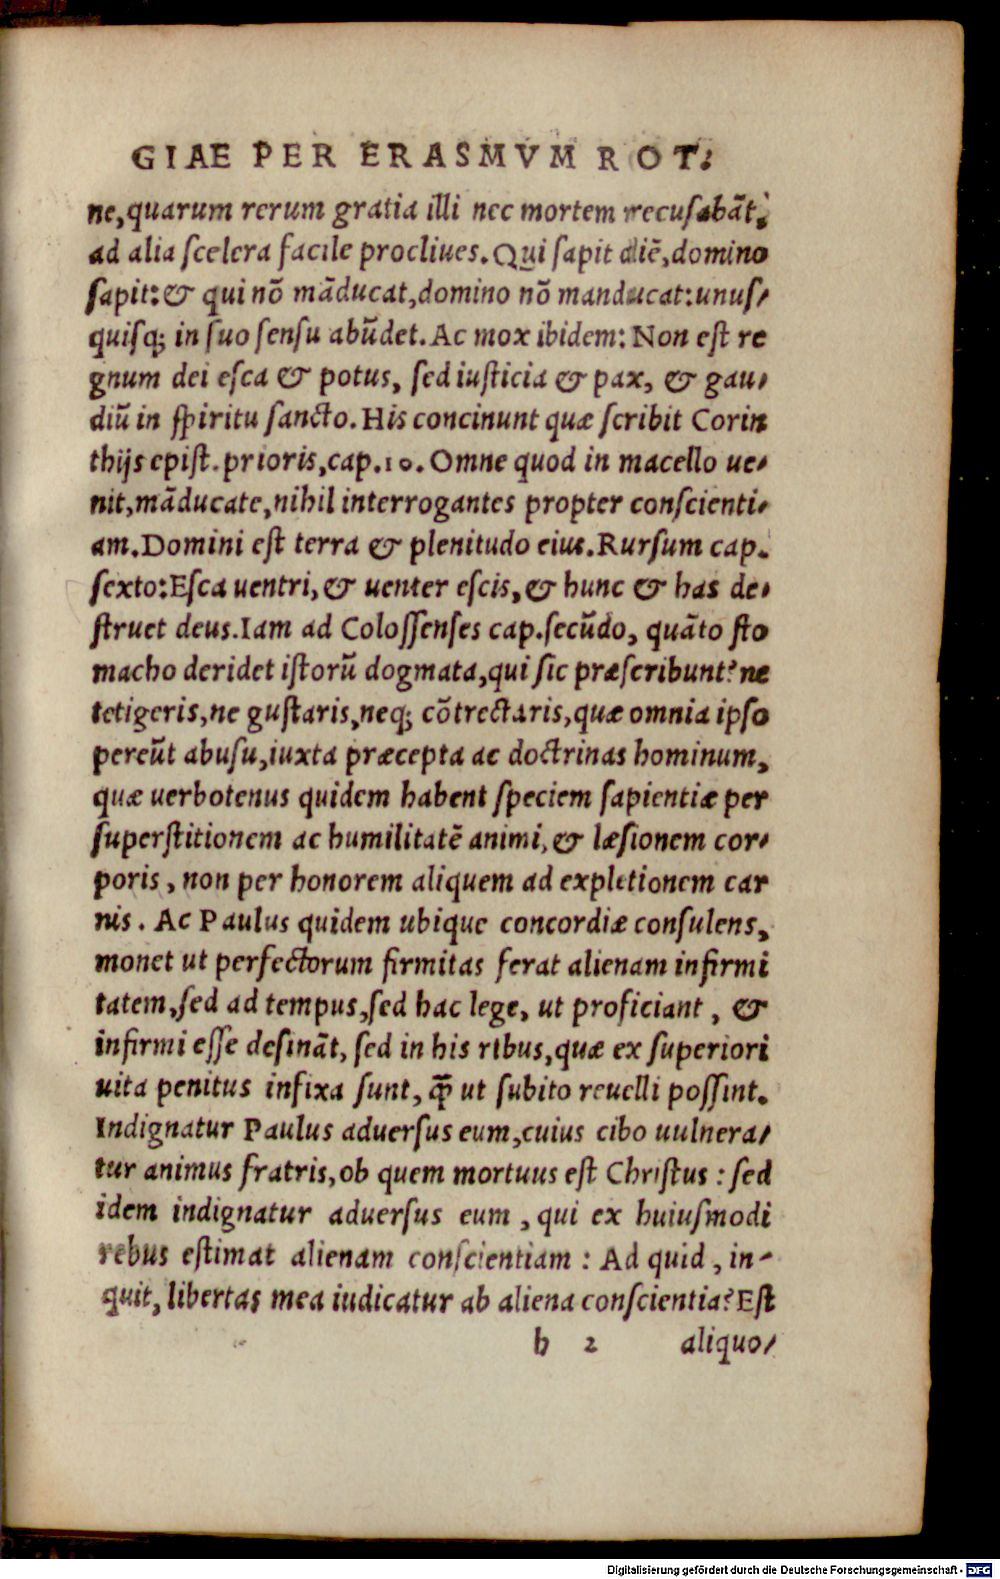 GIAE PER ERASMVM ROT.
ne, quarum rerum gratia illi nec mortem recusabãt,
ad alia scelera facile procliues. Qui sapit diẽ, domino
sapit: & qui nõ mãducat, domino nõ manducat: unus/
quisq; in suo sensu abũdet. Ac mox ibidem: Non est re
gnum dei esca & potus, sed iusticia & pax, & gau/
diũ in spiritu sancto. His concinunt quæ scribit Corin
thijs epist. prioris, cap. 10. Omne quod in macello ue/
nit, mãducate, nihil interrogantes propter conscienti/
am. Domini est terra & plenitudo eius. Rursum cap.
sexto: Esca uentri, & uenter escis, & hunc & has de/
struet deus. Iam ad Colossenses cap. secũdo, quãto sto
macho deridet istorũ dogmata, qui sic præscribunt? ne
tetigeris, ne gustaris, neq; cõtrectaris, quæ omnia ipso
pereũt abusu, iuxta præcepta ac doctrinas hominum,
quæ uerbotenus quidem habent speciem sapientiæ per
superstitionem ac humilitatẽ animi, & læsionem cor/
poris, non per honorem aliquem ad expletionem car
nis. Ac Paulus quidem ubique concordiæ consulens,
monet ut perfectorum firmitas ferat alienam infirmi
tatem, sed ad tempus, sed hac lege, ut proficiant, &
infirmi esse desinãt, sed in his rebus, quæ ex superiori
uita penitus infixa sunt, q̃ ut subito reuelli possint.
Indignatur Paulus aduersus eum, cuius cibo uulnera/
tur animus fratris, ob quem mortuus est Christus: sed
idem indignatur aduersus eum, qui ex huiusmodi
rebus estimat alienam conscientiam: Ad quid, in-
quit, libertas mea iudicatur ab aliena conscientia? Est
b 2 aliquo/
Digitalisierung gefördert durch die Deutsche Forschungsgemeinschaft - DFG